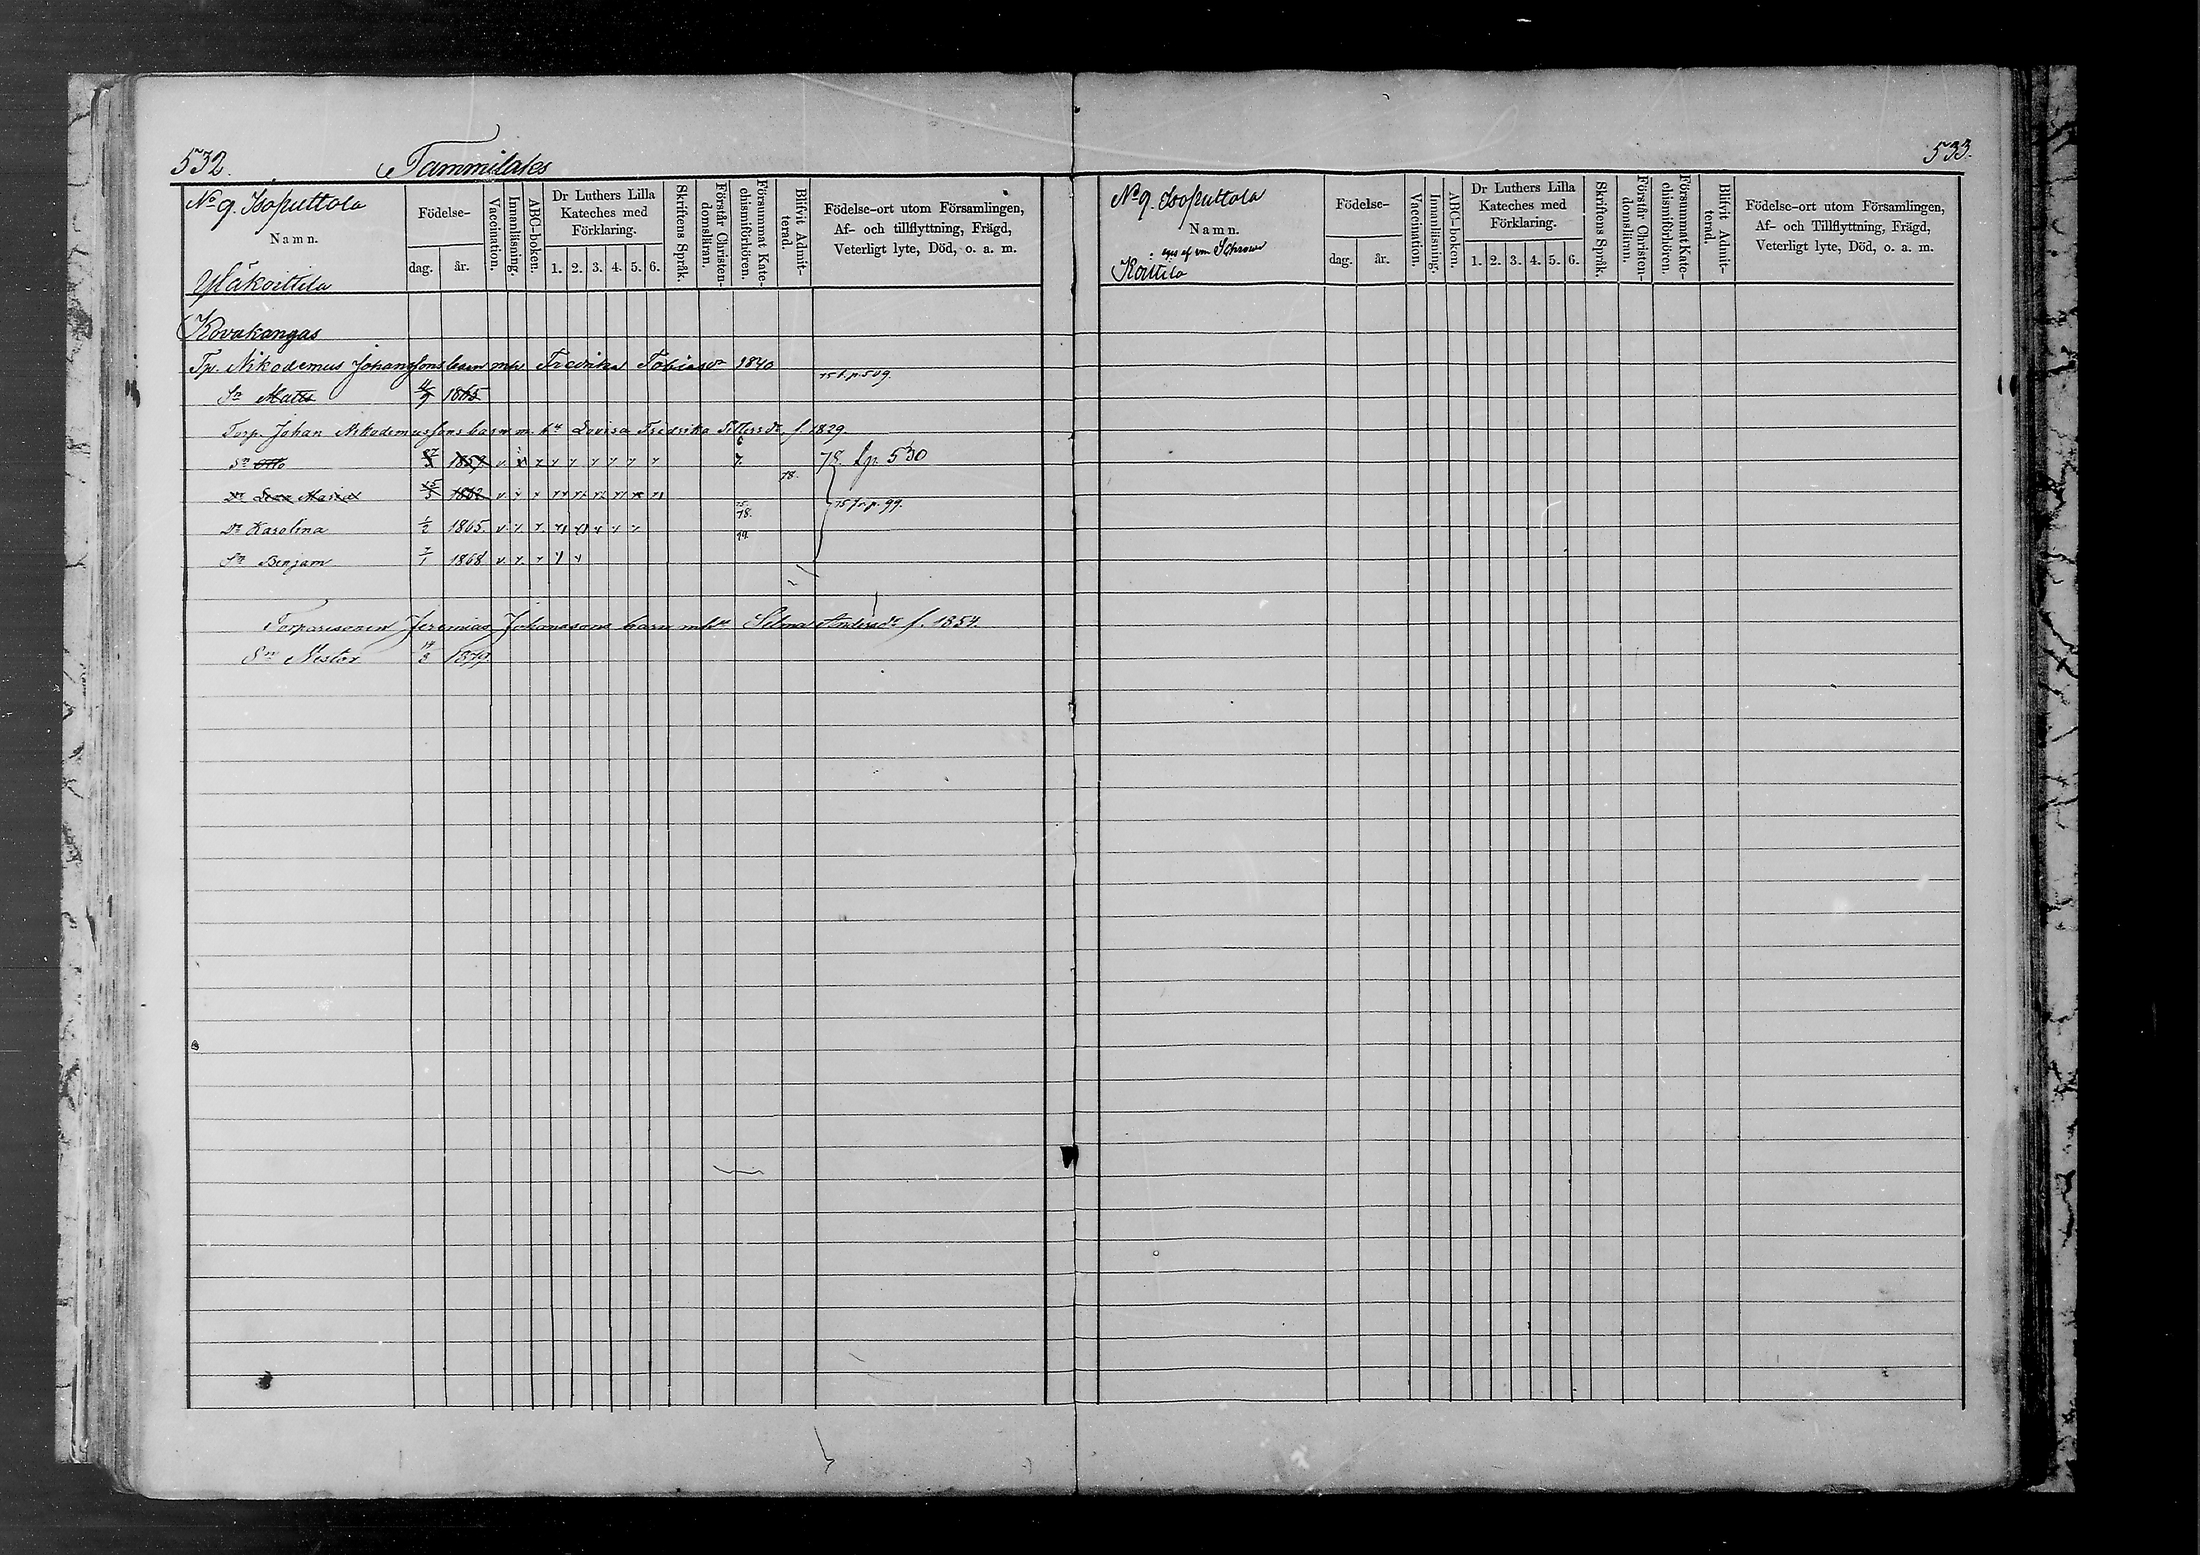 532. Tammilaks
No 9. Isoputtola
Namn.
Yläkoittila
Födelse-
dag. år.
Vaccination.
Innanläsning.
ABC-boken.
Dr Luthers Lilla
Kateches med
Förklaring.
1. 2. 3. 4. 5. 6.
Skriftens Språk.
Förstår Christen-
domsläran.
Försummat Kate-
chismiförhören.
Blifvit Admit-
terad.
Födelse-ort utom Församlingen,
Af- och tillflyttning, Frägd,
Veterligt lyte, Död, o. a. m.
Kovakangas
Tp. Nikodemus Johanssons barn mhu Fredrika Tobiasdr 1840
Sn Matts 4/9 1865 75 t. p. 509.
Torp. Johan Nikodemussons barn m. hu Lovisa Fredrika Pettersdr f. 1829.
Sn Otto 1859 v. 7. 78. t. p. 530
Dr Lena Maria 15/5 1862 v 18.
Dr Karolina 1/2 1865. v. 75. 78. 75 fr. p. 99.
Sn Benjam 7/1 1868 v. 79.
Torparesonen Jeremias Johanssons barn mhu Selma Andersdr f. 1854.
Sn Nestor 19/8 1879.
533.
No 9. Isoputtola
Namn.
eges af von Schrowe
Koittila
Födelse-
dag. år.
Vaccination.
Innanläsning.
ABC-boken.
Dr Luthers Lilla
Kateches med
Förklaring.
1. 2. 3. 4. 5. 6.
Skriftens Språk.
Förstår Christen-
domsläran.
Försummat Kate-
chismiförhören.
Blifvit Admit-
terad.
Födelse-ort utom Församlingen,
Af- och Tillflyttning, Frägd,
Veterligt lyte, Död, o. a. m.